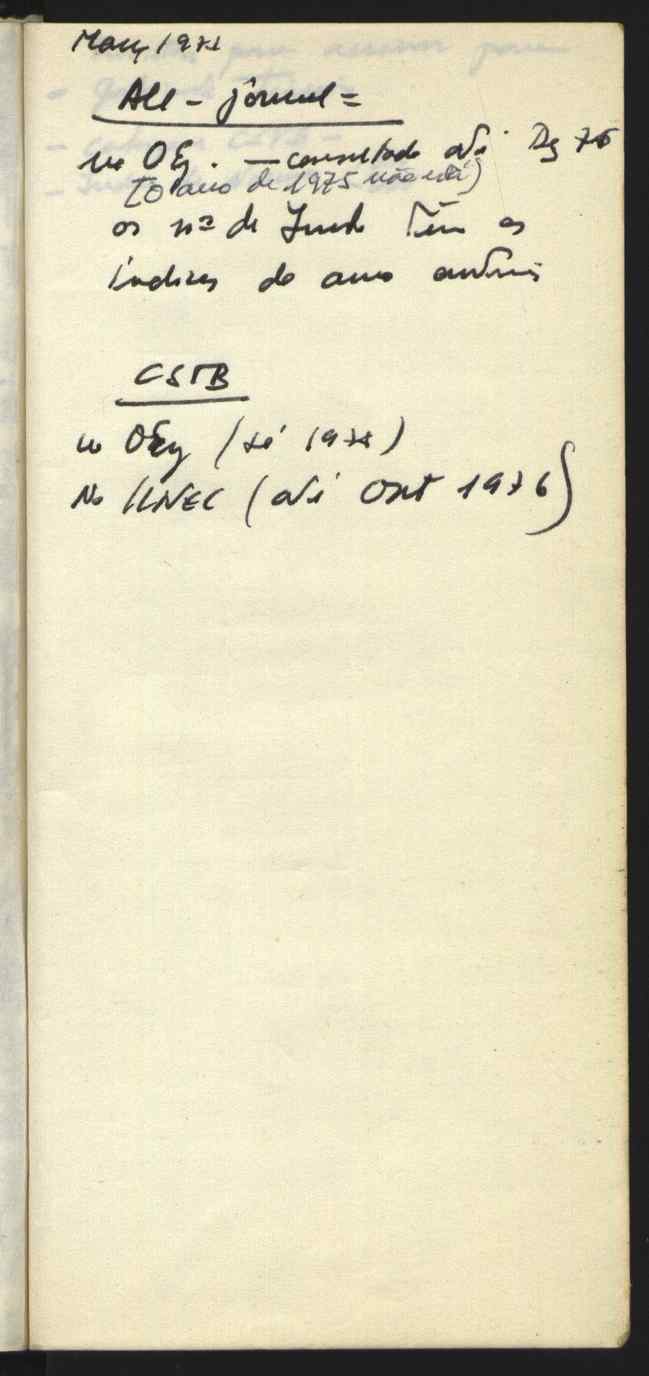 ACI - journal =
no OEng. — consultado até Dez 76
(o ano de 1975 não está)
os nos de Junho Têm os
índices do ano anterior
CSTB
no OEng (até
No LNEC (até Out 1976)